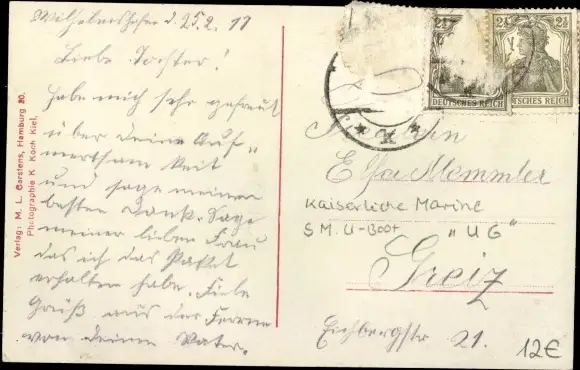 Wilhelmshafen d. 25.2.17
Liebe Tochter!
Habe mich sehr gefreut
über deine Auf-
mertsam keit
und sage meinen
besten Dank. Sage
meiner lieben Frau
das ich das Paket
erhalten habe. Fiele
Grüß aus der Ferne
von deinem Vater.
Verlag: M. L. Carstens, Hamburg 30.
Photographie K. Koch Kiel.
2½
DEUTSCHES REICH
2½ 2½
DEUTSCHES REICH
Elsa Memmler
Kaiserliche Marine
S M U-Boot "U G"
Greiz
Eichbergstr 21.
12€